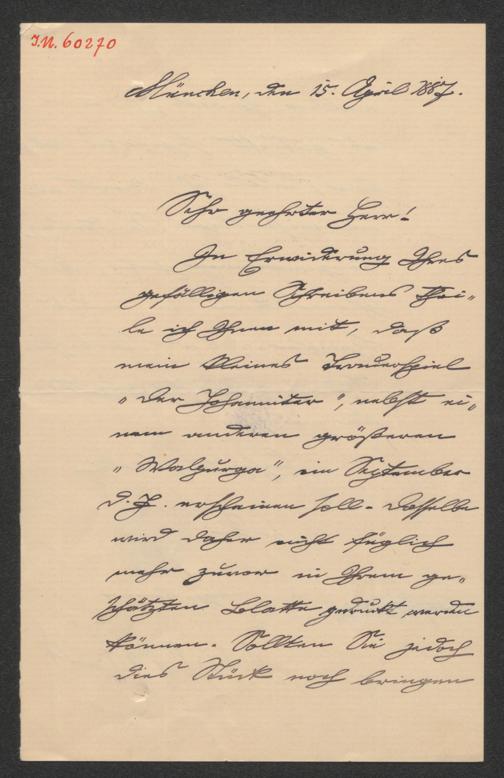 I.N. 60270
München, den 15. April 1887.
Sehr geehrter Herr!
In Erwiderung Ihres
gefälligen Schreibens thei-
le ich Ihnen mit, daß
mein kleines Trauerspiel
"Der Johanniter", nebst ei-
nem anderen größeren
"Walpurga", im September
d. J. erscheinen soll. Dasselbe
wird daher nicht füglich
mehr zuvor in Ihrem ge-
schätzten Blatte gedruckt werden
können. Sollten Sie jedoch
dies Stück noch bringen